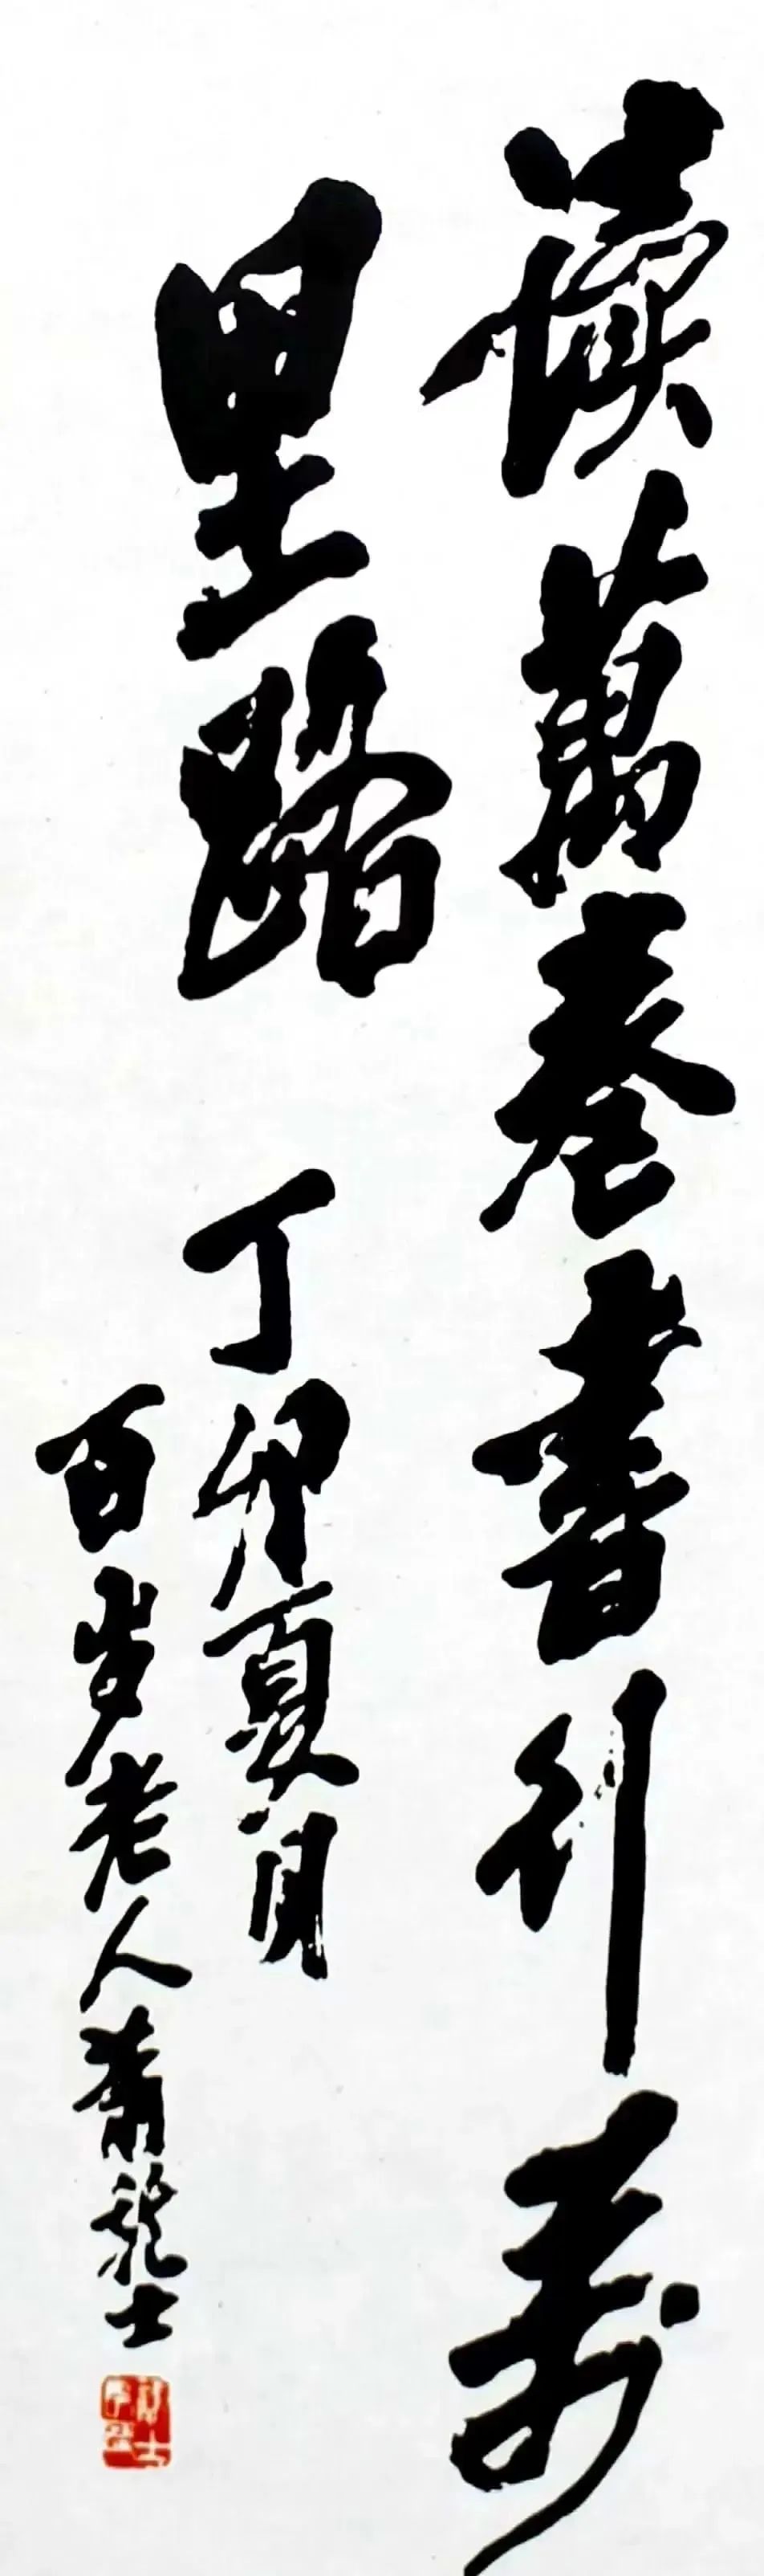 讀萬卷書行萬
里路
丁卯夏月
百岁老人萧龍士